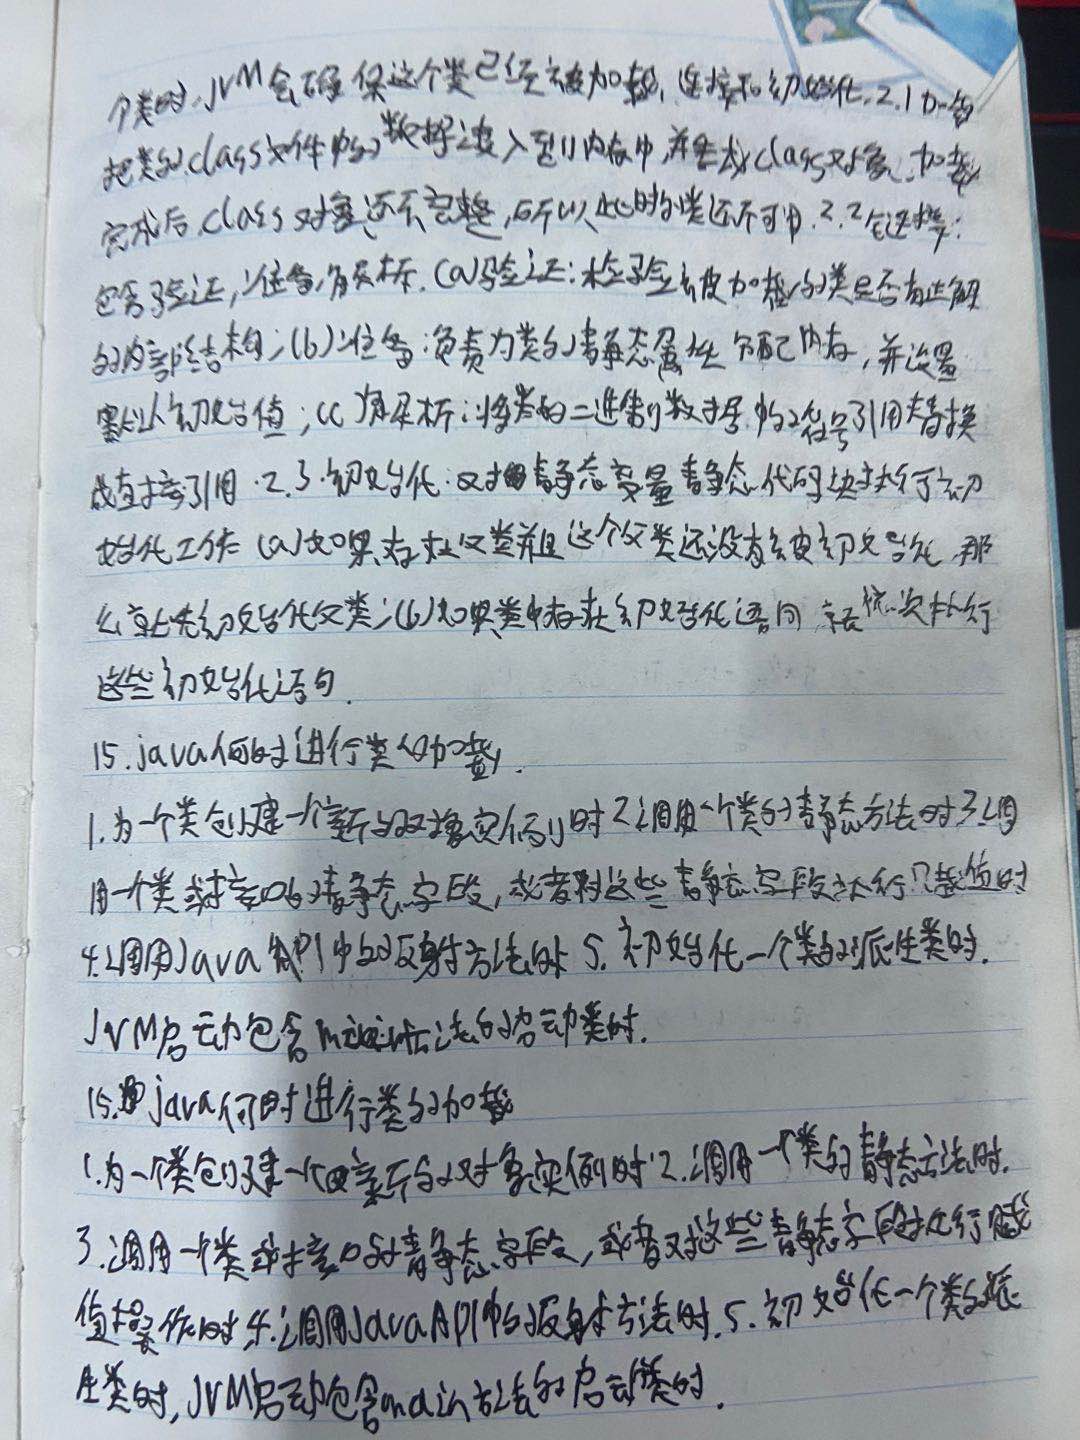 个类时,JVM会确保这个类已经被加载,连接和初始化.2.1加载
把类的.class文件中的数据读入到内存中,并生成class对象,加载
完成后,class对象还不完整,所以此时的类还不可用.2.2链接:
包含验证,准备,解析.(a)验证:检验被加载的类是否有正确
的内部结构;(b)准备:负责为类的静态属性分配内存,并设置
默认初始值;(c)解析:将类的二进制数据中的符号引用替换
成直接引用.2.3.初始化:对静态变量静态代码块执行初
始化工作(a)如果存在父类并且这个父类还没有被初始化,那
么就先初始化父类;(b)如果类中存在初始化语句,就依次执行
这些初始化语句.
15.java何时进行类的加载.
1.为一个类创建一个新的对象实例时2.调用一个类的静态方法时3.调
用一个类或接口的静态字段,或者对这些静态字段执行赋值时
4.调用Java API中的反射方法时 5.初始化一个类的派生类时.
JVM启动包含main方法的启动类时.
15.java何时进行类的加载
1.为一个类创建一个新的对象实例时2.调用一个类的静态方法时.
3.调用一个类或接口的静态字段,或者对这些静态字段执行赋
值操作时4.调用Java API中的反射方法时.5.初始化一个类的派
生类时,JVM启动包含main方法的启动类时.